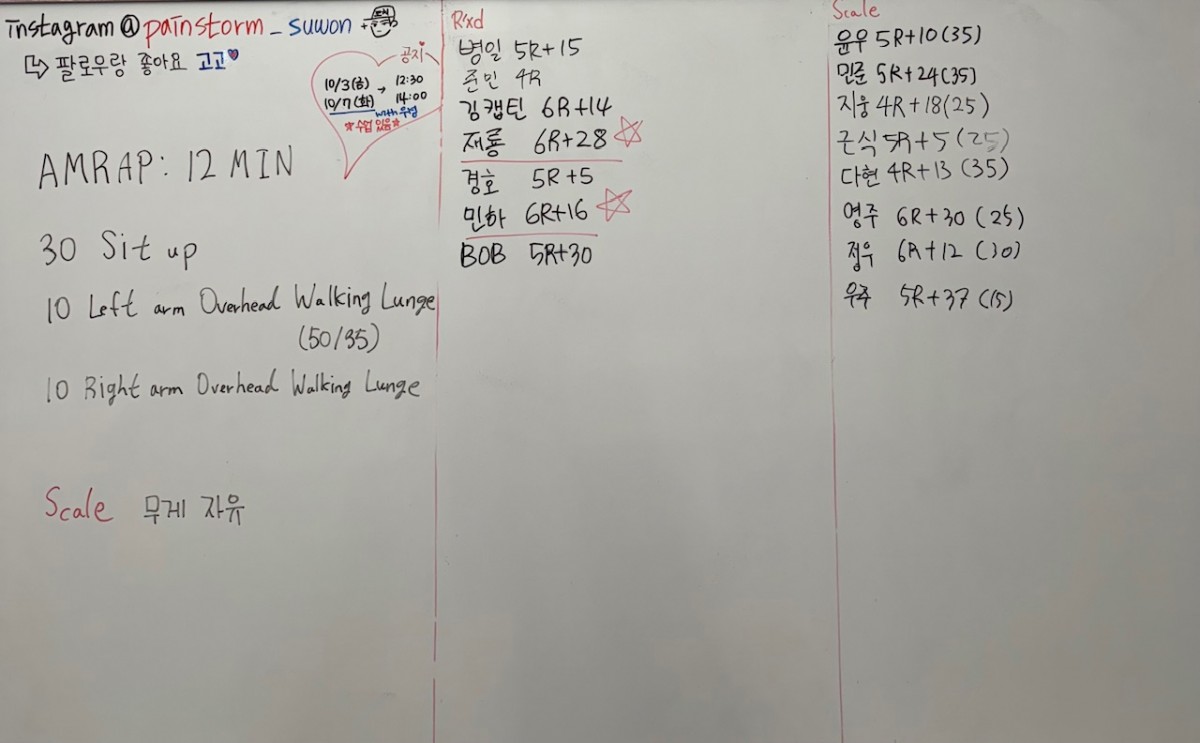 instagram @painstorm_suwon
팔로우랑 좋아요 고고
공지
10/3(금) → 12:30
10/7(화) 14:00
with 우성
☆수업 있음☆
AMRAP: 12 MIN
30 Sit up
10 Left arm Overhead Walking Lunge
(50/35)
10 Right arm Overhead Walking Lunge
Scale 무게 자유
R'xd
병일 5R+15
준민 4R
김캡틴 6R+14
재룡 6R+28
경호 5R+5
민하 6R+16
BOB 5R+30
Scale
윤우 5R+10(35)
민준 5R+24(35)
지웅 4R+18(25)
근식 5R+5(25)
다현 4R+13(35)
영주 6R+30(25)
정우 6R+12(30)
우주 5R+37(15)